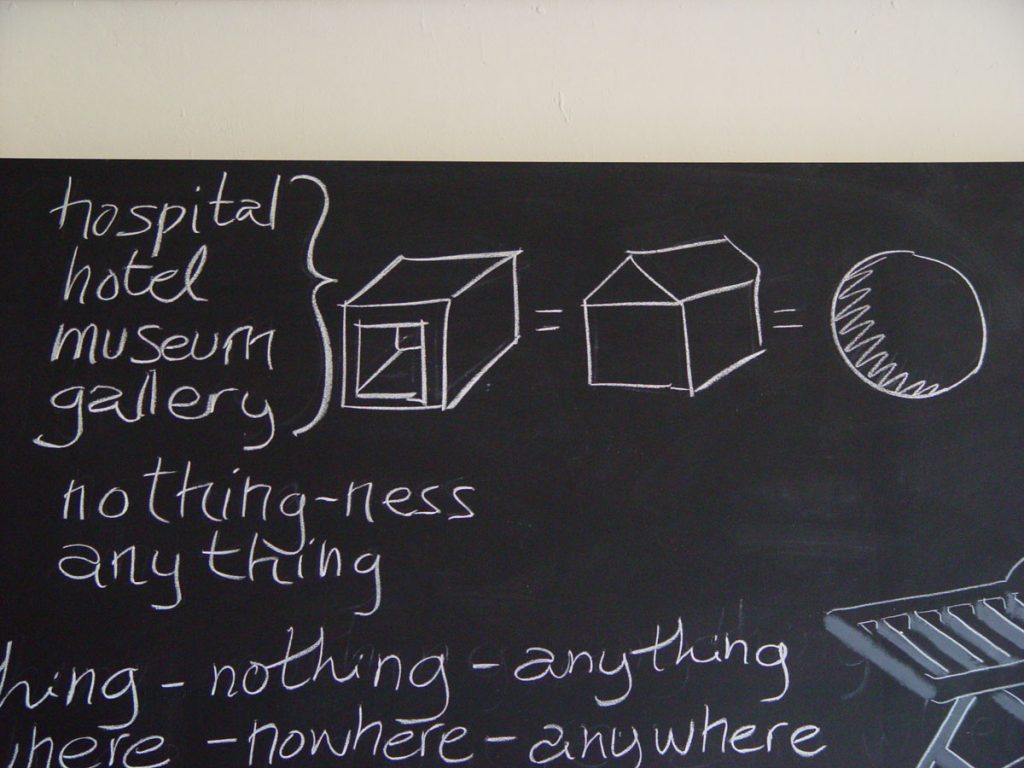 hospital
hotel
museum
gallery
= =
nothing-ness
anything
thing - nothing - anything
where - nowhere - anywhere